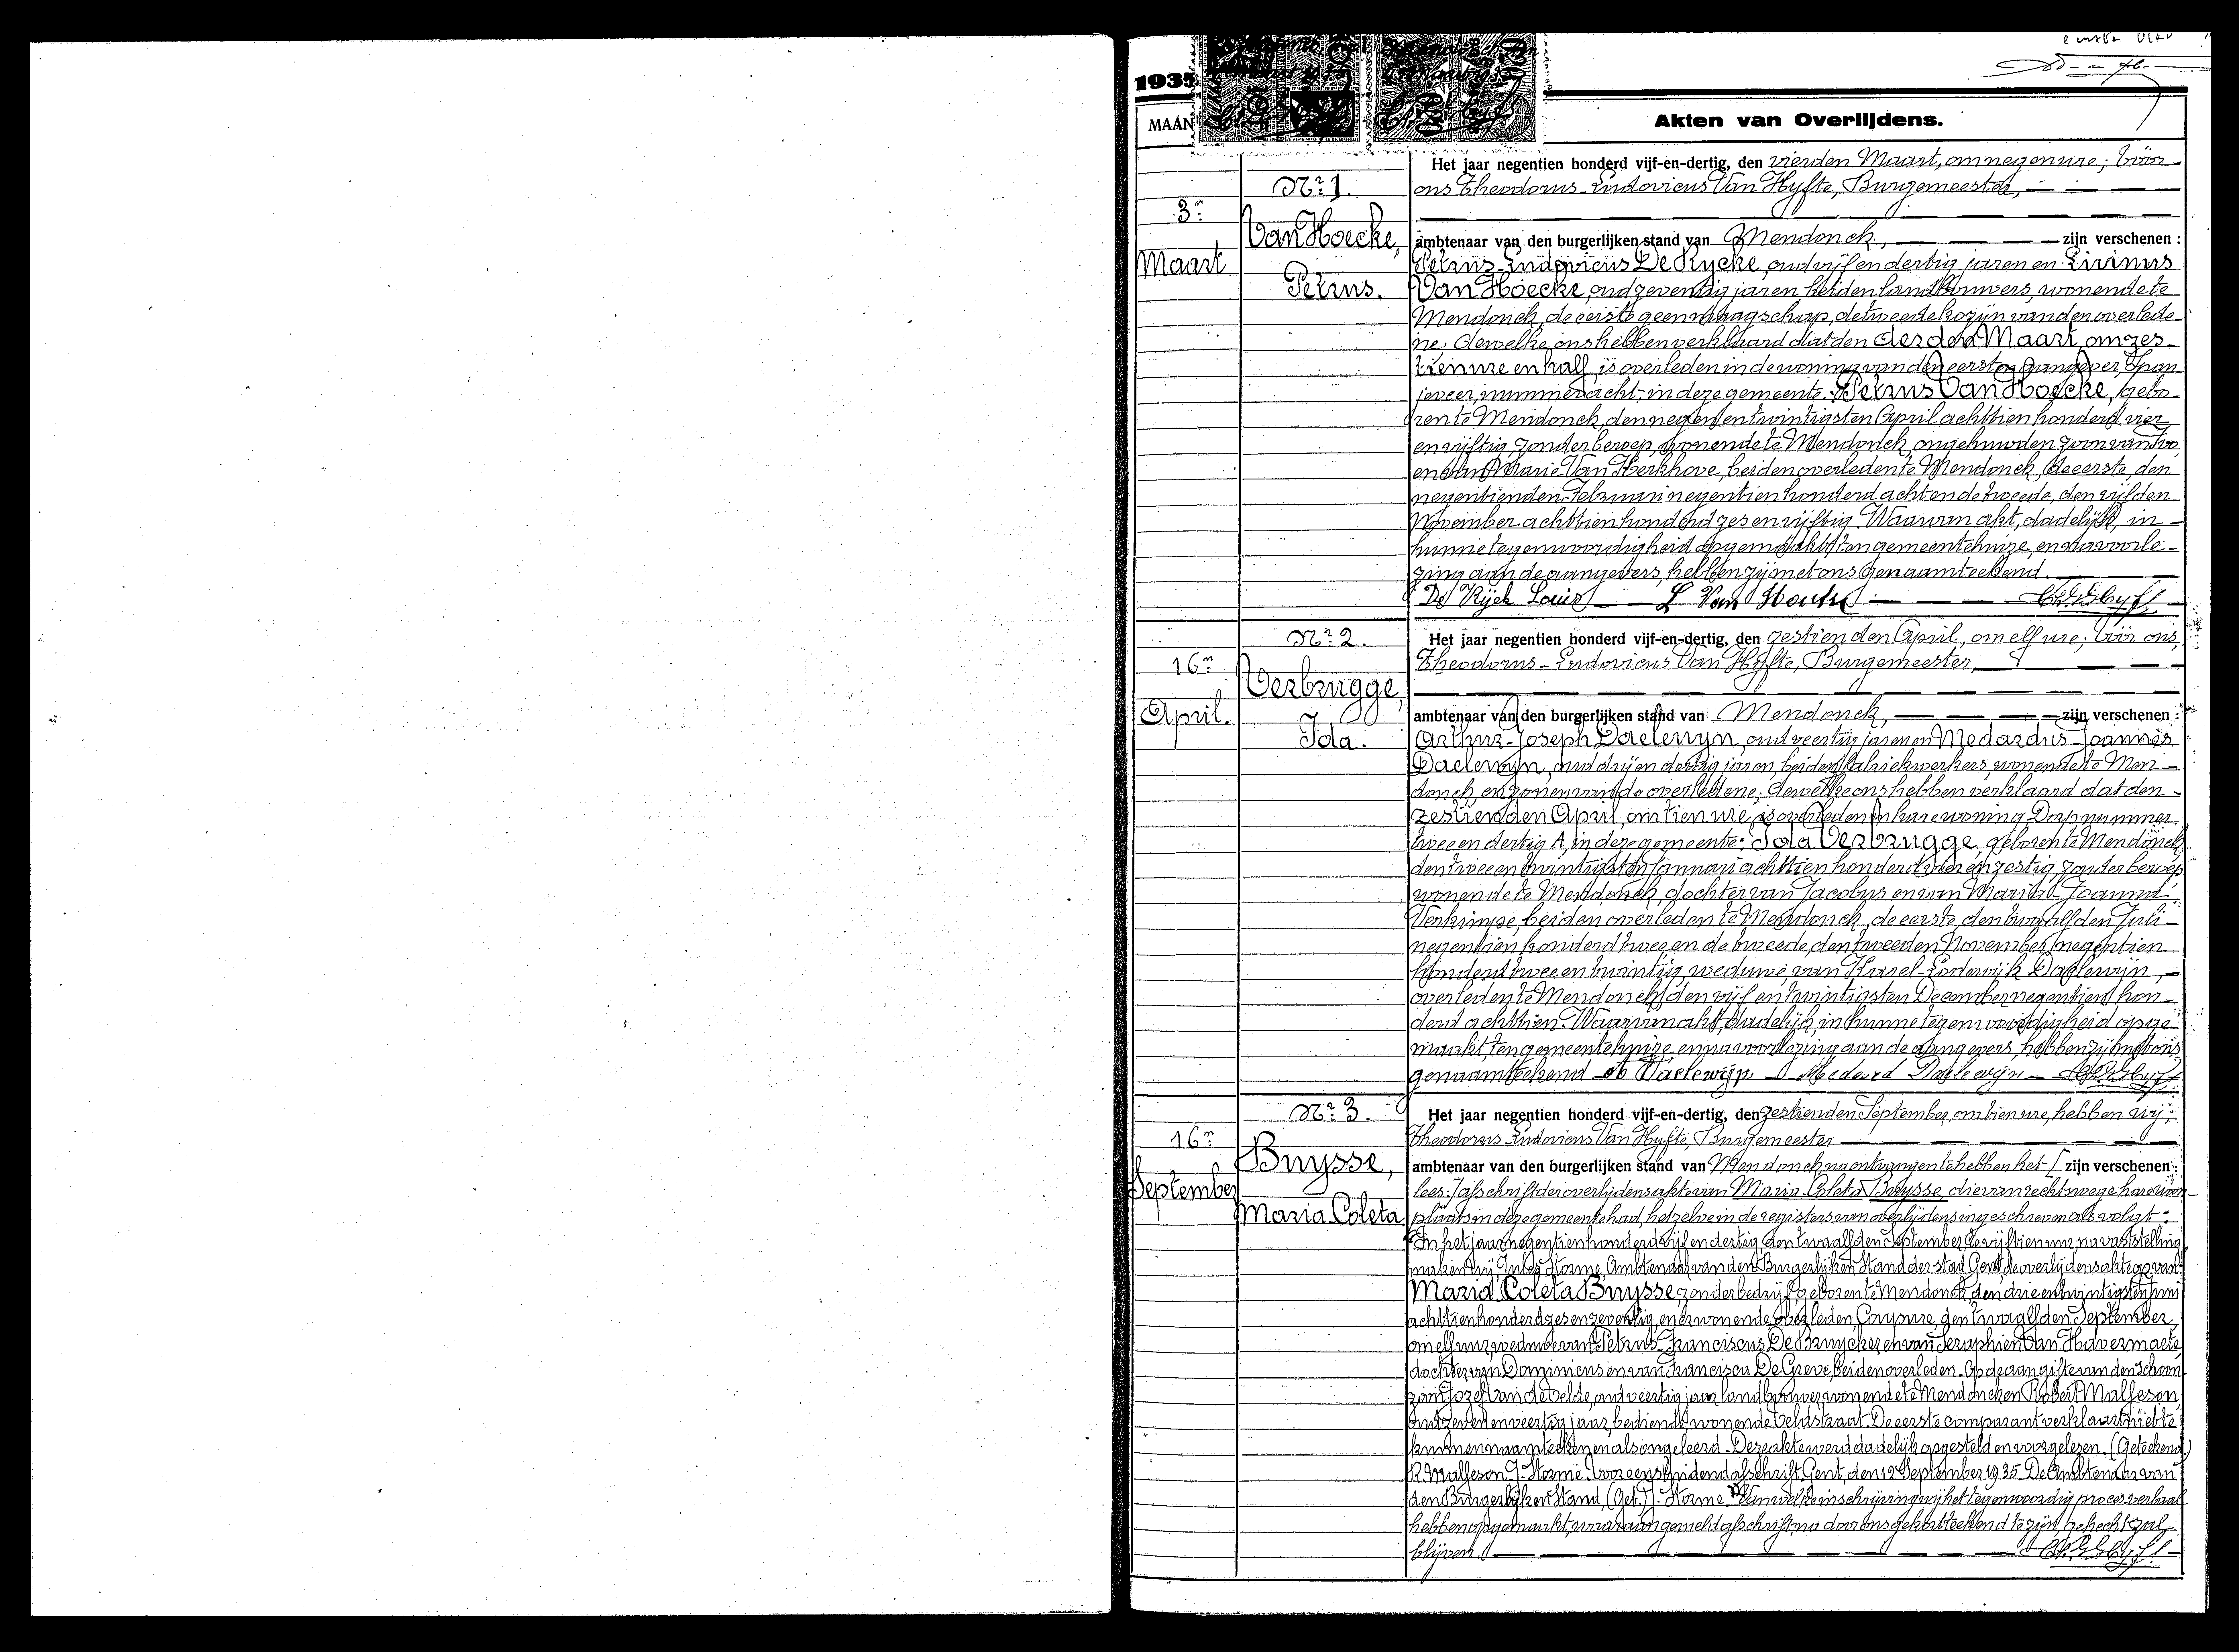 1935
MAAN
Akten van Overlijdens.
Het jaar negentien honderd vijf-en-dertig, den vierden Maart, om negen ure; vóór
Nr. 1.
ons Theodorus-Ludovicus Van Hyfte, Burgemeester,
3n
Maart
Van Hoecke,
Petrus.
ambtenaar van den burgerlijken stand van Mendonck, zijn verschenen :
Petrus-Ludovicus De Rycke, oud vijf en dertig jaren en Livinus
Van Hoecke, oud zeventig jaren beiden landbouwers, wonende te
Mendonck, de eerste geen maagschap, de tweede kozijn van den overlede-
ne; dewelke ons hebben verklaard dat den derden Maart, om zes-
tien ure en half, is overleden in de woning van den eersten aangever, Span
jeveer, nummer acht, in deze gemeente: Petrus Van Hoecke, gebo-
ren te Mendonck, den negen en twintigsten April achttien honderd vier
en vijftig, zonder beroep, wonende te Mendonck, ongehuwden zoon van Ivo
en van Marie Van Kerkhove, beiden overleden te Mendonck, de eerste, den
negentienden Februari negentien honderd acht en de tweede, den vijfden
November achttien honderd zes en vijftig. Waarvan akt, dadelijk, in
hunne tegenwoordigheid opgemaakt ten gemeentehuize, en na voorle-
zing aan de aangevers, hebben zij met ons genaamteekend.
De Rijck Louis L Van Houcke
Nr. 2.
Het jaar negentien honderd vijf-en-dertig, den zestienden April, om elf ure; vóór ons,
Theodorus-Ludovicus Van Hyfte, Burgemeester,
16n
April.
Verbrugge,
Ida.
ambtenaar van den burgerlijken stand van Mendonck, zijn verschenen :
Arthur-Joseph Daelewyn, oud veertig jaren en Medardus-Joannes
Daelewyn, oud drij en dertig jaren, beiden fabriekwerkers, wonende te Men-
donck, en zonen van de overledene; dewelke ons hebben verklaard dat den
zestienden April, om tien ure, is overleden in hare woning, Dorp nummer
twee en dertig A, in deze gemeente: Ida Verbrugge, geboren te Mendonck,
den twee en twintigsten Januari achttien honderd vier en zestig, zonder beroep,
wonende te Mendonck, dochter van Jacobus en van Maria-Joanna
Verkimpe, beiden overleden te Mendonck, de eerste, den twaalfden Juli
negentien honderd twee, en de tweede, den tweeden November negentien
honderd twee en twintig, weduwe van Karel-Lodewijk Daelewijn,
overleden te Mendonck den vijf en twintigsten December negentien hon-
derd achttien. Waarvan akt, dadelijk, in hunne tegenwoordigheid opge
maakt, ten gemeentehuize, en na voorlezing aan de aangevers, hebben zij met ons
genaamteekend A Daelewijn Medard Daelewijn
Nr. 3.
Het jaar negentien honderd vijf-en-dertig, den zestienden September, om tien ure, hebben wij,
Theodorus Ludovicus Van Hyfte, Burgemeester
16n
September
Buysse,
Maria Coleta
ambtenaar van den burgerlijken stand van Mendonck na ontvangen te hebben het [ zijn verschenen :
lees:] afschrift der overlijdensakte van Maria-Coleta Buysse, die van rechtswege hare woon-
plaats in deze gemeente had, hetzelve in de registers van overlijdens ingeschreven als volgt:
"In het jaar negentien honderd vijf en dertig, den twaalfden September, te vijftien uur, na vaststelling,
maken wij, Storme, Ambtenaar van den Burgerlijken Stand der stad Gent, de overlijdensakte op van
Maria Coleta Buysse, zonder bedrijf, geboren te Mendonck, den drie en twintigsten Juni
achttien honderd zes en zeventig, en er wonende, overleden, Coupure, den twaalfden September,
om elf uur, weduwe van Petrus-Franciscus De Bruycker en van Seraphien Van Havermaete,
dochter van Dominicus en van Francisca De Greve, beiden overleden. Op de aangifte van den schoon
zoon Jozef Van de Velde, oud veertig jaar, landbouwer, wonende te Mendonck en Robert Malfeson,
oud zeven en veertig jaar, bediende, wonende Veldstraat. De eerste comparant verklaart niet te
kunnen naamteekenen als ongeleerd. Deze akte werd dadelijk opgesteld en voorgelezen. (Geteekend)
R. Malfeson J. Storme. Voor eensluidend afschrift. Gent, den 12 September 1935. De Ambtenaar van
den Burgerlijken Stand, (Get.) J. Storme." Van welke inschrijving wij het tegenwoordig proces-verbaal
hebben opgemaakt, waaraan gemeld afschrift, na door ons gekortteekend te zijn, gehecht zal
blijven.